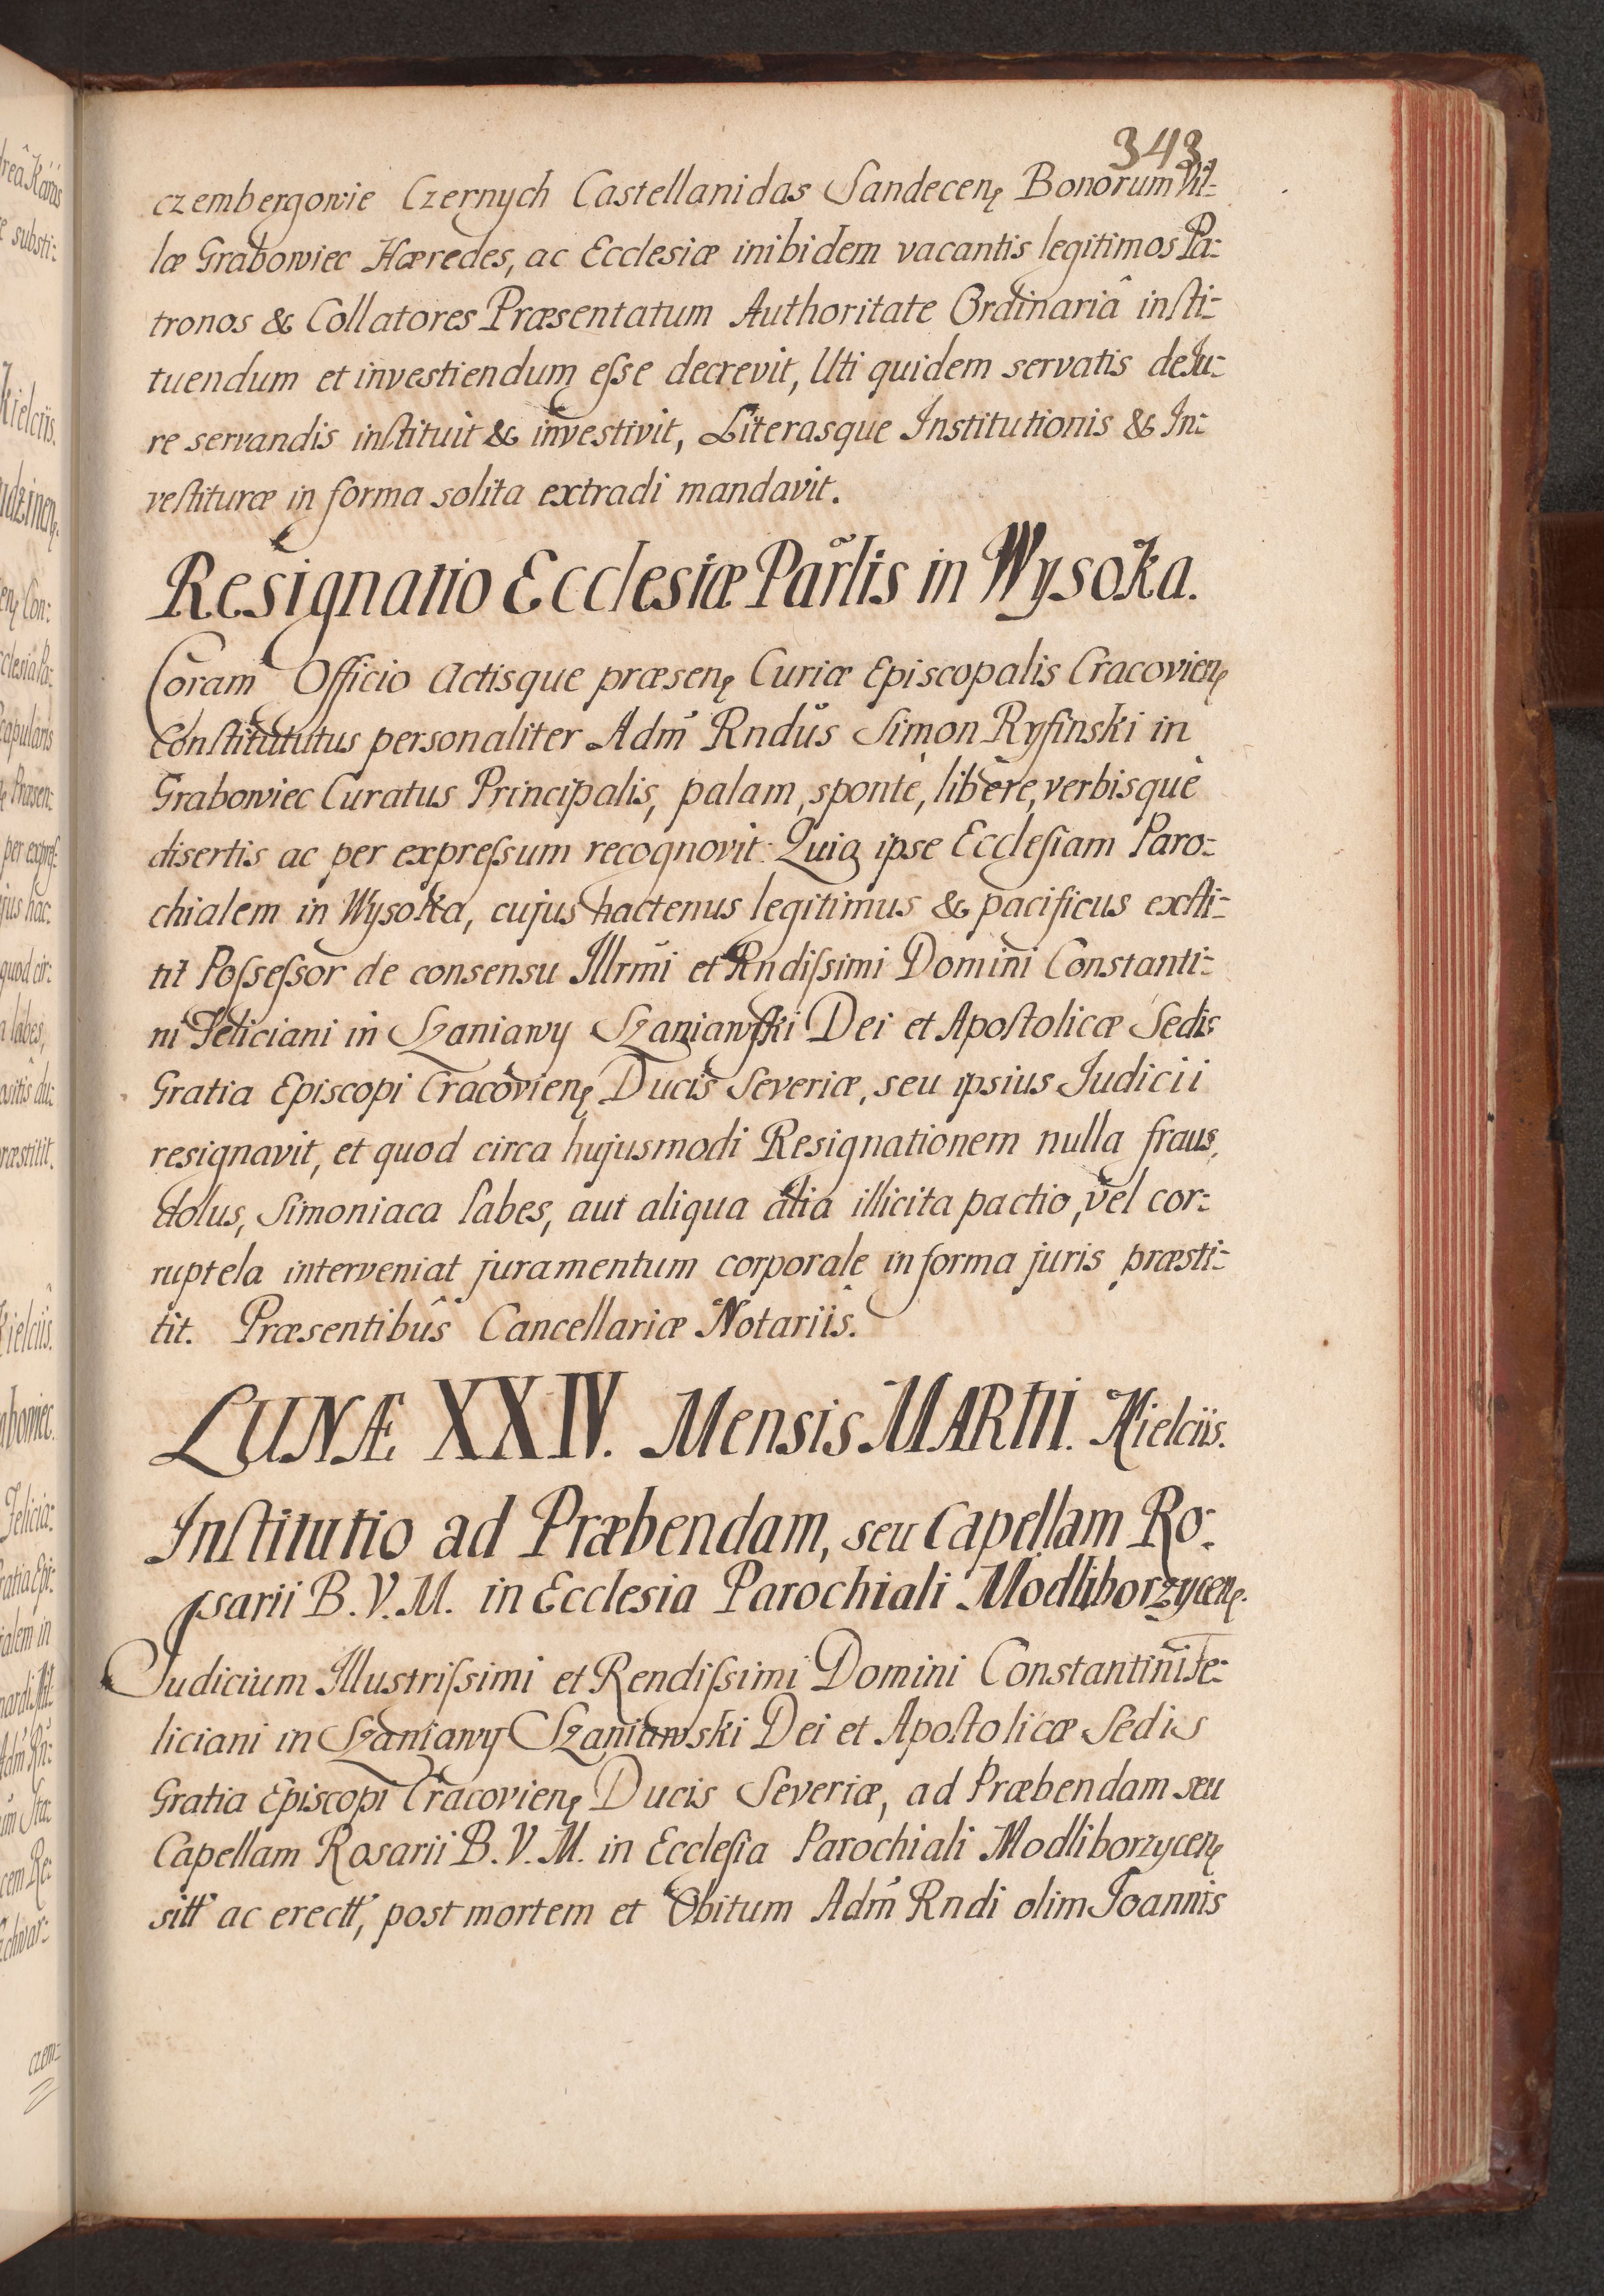 343
czembergowie Czernych Castellanidas Sandecenę Bonorum Vil-
læ Grabowiec Hæredes, ac Ecclesiæ inibidem vacantis legitimos Pa-
tronos & Collatores Præsentatum Authoritate Ordinariâ insti-
tuendum et investiendum eſse decrevit, Uti quidem servatis de Ju-
re servandis inſtituit & investivit, Literasque Institutionis & In-
veſtituræ in forma solita extradi mandavit.
Resignatio Ecclesiæ Parl̃is in Wysoka.
Coram Officio Actisque præsenę Curiæ Episcopalis Cracovienę
Conſtitututus personaliter Adm̃ Rndũs Simon Ryſinski in
Grabowiec Curatus Principalis, palam, spontè, liberè, verbisquè
disertis ac per expreſsum recognovit: Quia ipse Eccleſiam Paro-
chialem in Wysoka, cujus hactenus legitimus & pacificus exſti-
tit Poſseſsor de consensu Illrm̃i et Rndiſsimi Domini Constanti-
ni Feliciani in Szaniawy Szaniawſki Dei et Apoſtolicæ Sedis
Gratia Episcopi Cracovienę Ducis Severiæ, seu ipsius Judicii
resignavit, et quod circa hujusmodi Resignationem nulla fraus,
dolus, Simoniaca labes, aut aliqua alia illicita pactio, vel cor-
ruptela interveniat juramentum corporale in forma juris præsti-
tit. Præsentibûs Cancellariæ Notariis.
LUNÆ XXIV. Mensis MARTII. Kielciis.
Inſtitutio ad Præbendam, seu Capellam Ro-
sarii B. V. M. in Ecclesia Parochiali Modliborzycenę.
Judicium Illustriſsimi et Rendiſsimi Domini Constantini Fe-
liciani in Szaniawy Szaniawski Dei et Apoſtolicæ Sedis
Gratia Episcopi Cracovienę Ducis Severiæ, ad Præbendam seu
Capellam Rosarii B. V. M. in Eccleſia Parochiali Modliborzycenę
sitt' ac erectt', post mortem et Obitum Adm̃ Rndi olim Joannis